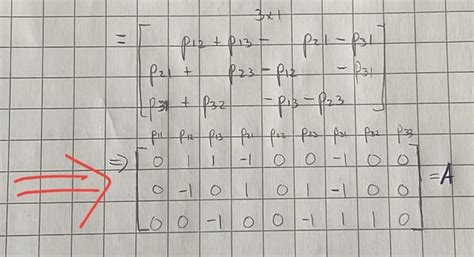 3x1
= [ p12 + p13 - p21 - p31
p21 + p23 - p12 - p31
p31 + p32 - p13 - p23 ]
p11 p12 p13 p21 p22 p23 p31 p32 p33
⇒ [ 0 1 1 -1 0 0 -1 0 0
0 -1 0 1 0 1 -1 0 0 ] = A
0 0 -1 0 0 -1 1 1 0